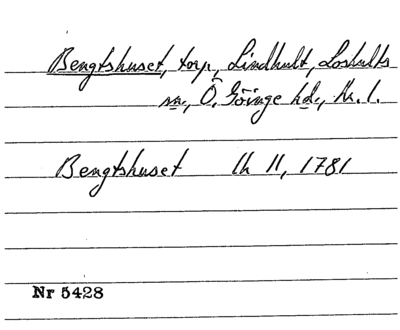 Bengtshuset, torp, Lindhult, Loshults
sn., Ö. Göinge hd., Kr. l.
Bengtshuset lh 11, 1781
Nr 5428